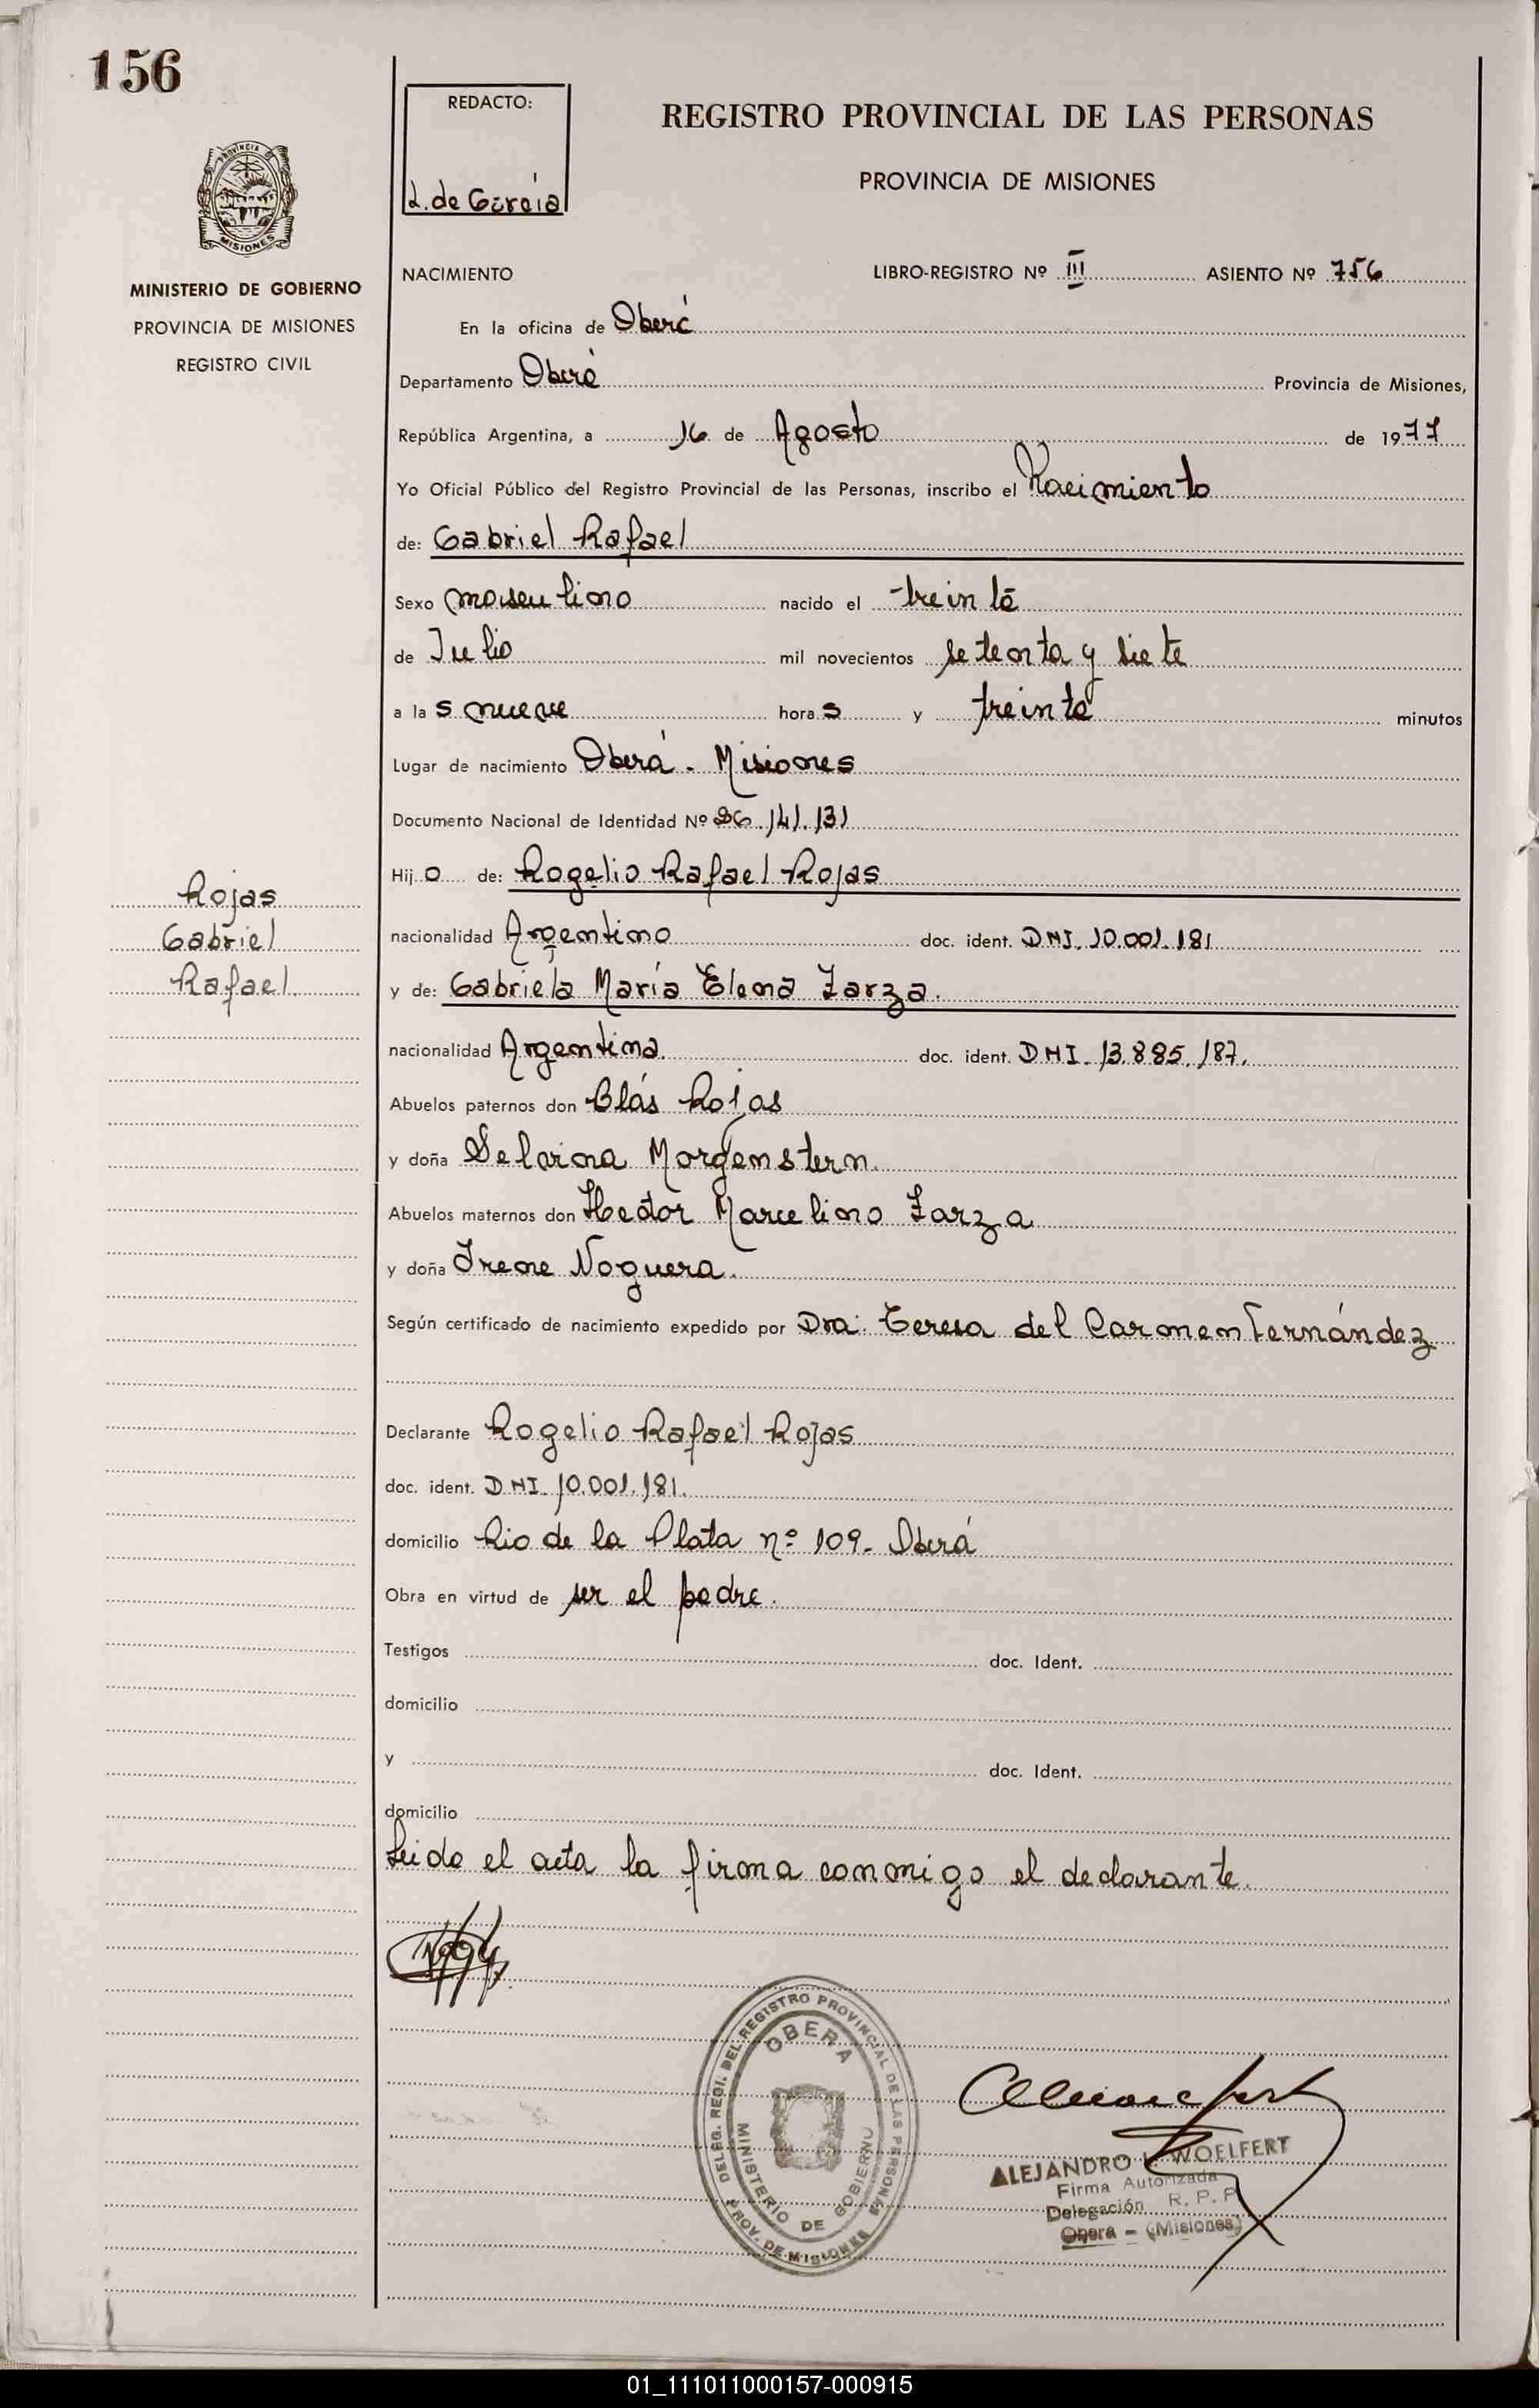 156
REDACTO:
L. de García
REGISTRO PROVINCIAL DE LAS PERSONAS
PROVINCIA DE MISIONES
PROVINCIA DE
MISIONES
MINISTERIO DE GOBIERNO
PROVINCIA DE MISIONES
REGISTRO CIVIL
NACIMIENTO LIBRO-REGISTRO Nº III ASIENTO Nº 756
En la oficina de Oberá
Departamento Oberá Provincia de Misiones,
República Argentina, a 16 de Agosto de 1977
Yo Oficial Público del Registro Provincial de las Personas, inscribo el Nacimiento
de: Gabriel Rafael
Sexo masculino nacido el treinta
de Julio mil novecientos setenta y siete
a las nueve horas y treinta minutos
Lugar de nacimiento Oberá - Misiones
Documento Nacional de Identidad Nº 26.141.131
Hijo de: Rogelio Rafael Rojas
Rojas
Gabriel
Rafael.
nacionalidad Argentino doc. ident. DNI. 10.001.181
y de: Gabriela María Elena Zarza.
nacionalidad Argentina. doc. ident. DNI. 13.885.187.
Abuelos paternos don Blás Rojas
y doña Selarina Morgenstern.
Abuelos maternos don Hector Marcelino Zarza
y doña Irene Noguera.
Según certificado de nacimiento expedido por Dra. Teresa del Carmen Fernández
Declarante Rogelio Rafael Rojas
doc. ident. DNI. 10.001.181.
domicilio Rio de la Plata nº 109- Oberá
Obra en virtud de ser el padre.
Testigos doc. Ident.
domicilio
y doc. Ident.
domicilio
Leido el acta la firma conmigo el declarante.
DELEG. REGI. DEL REGISTRO PROVINCIAL DE LAS PERSONAS
OBERA
MINISTERIO DE GOBIERNO
PROV. DE MISIONES
ALEJANDRO WOELFERT
Firma Autorizada
Delegación R. P. P.
Oberá - (Misiones)
01_111011000157-000915